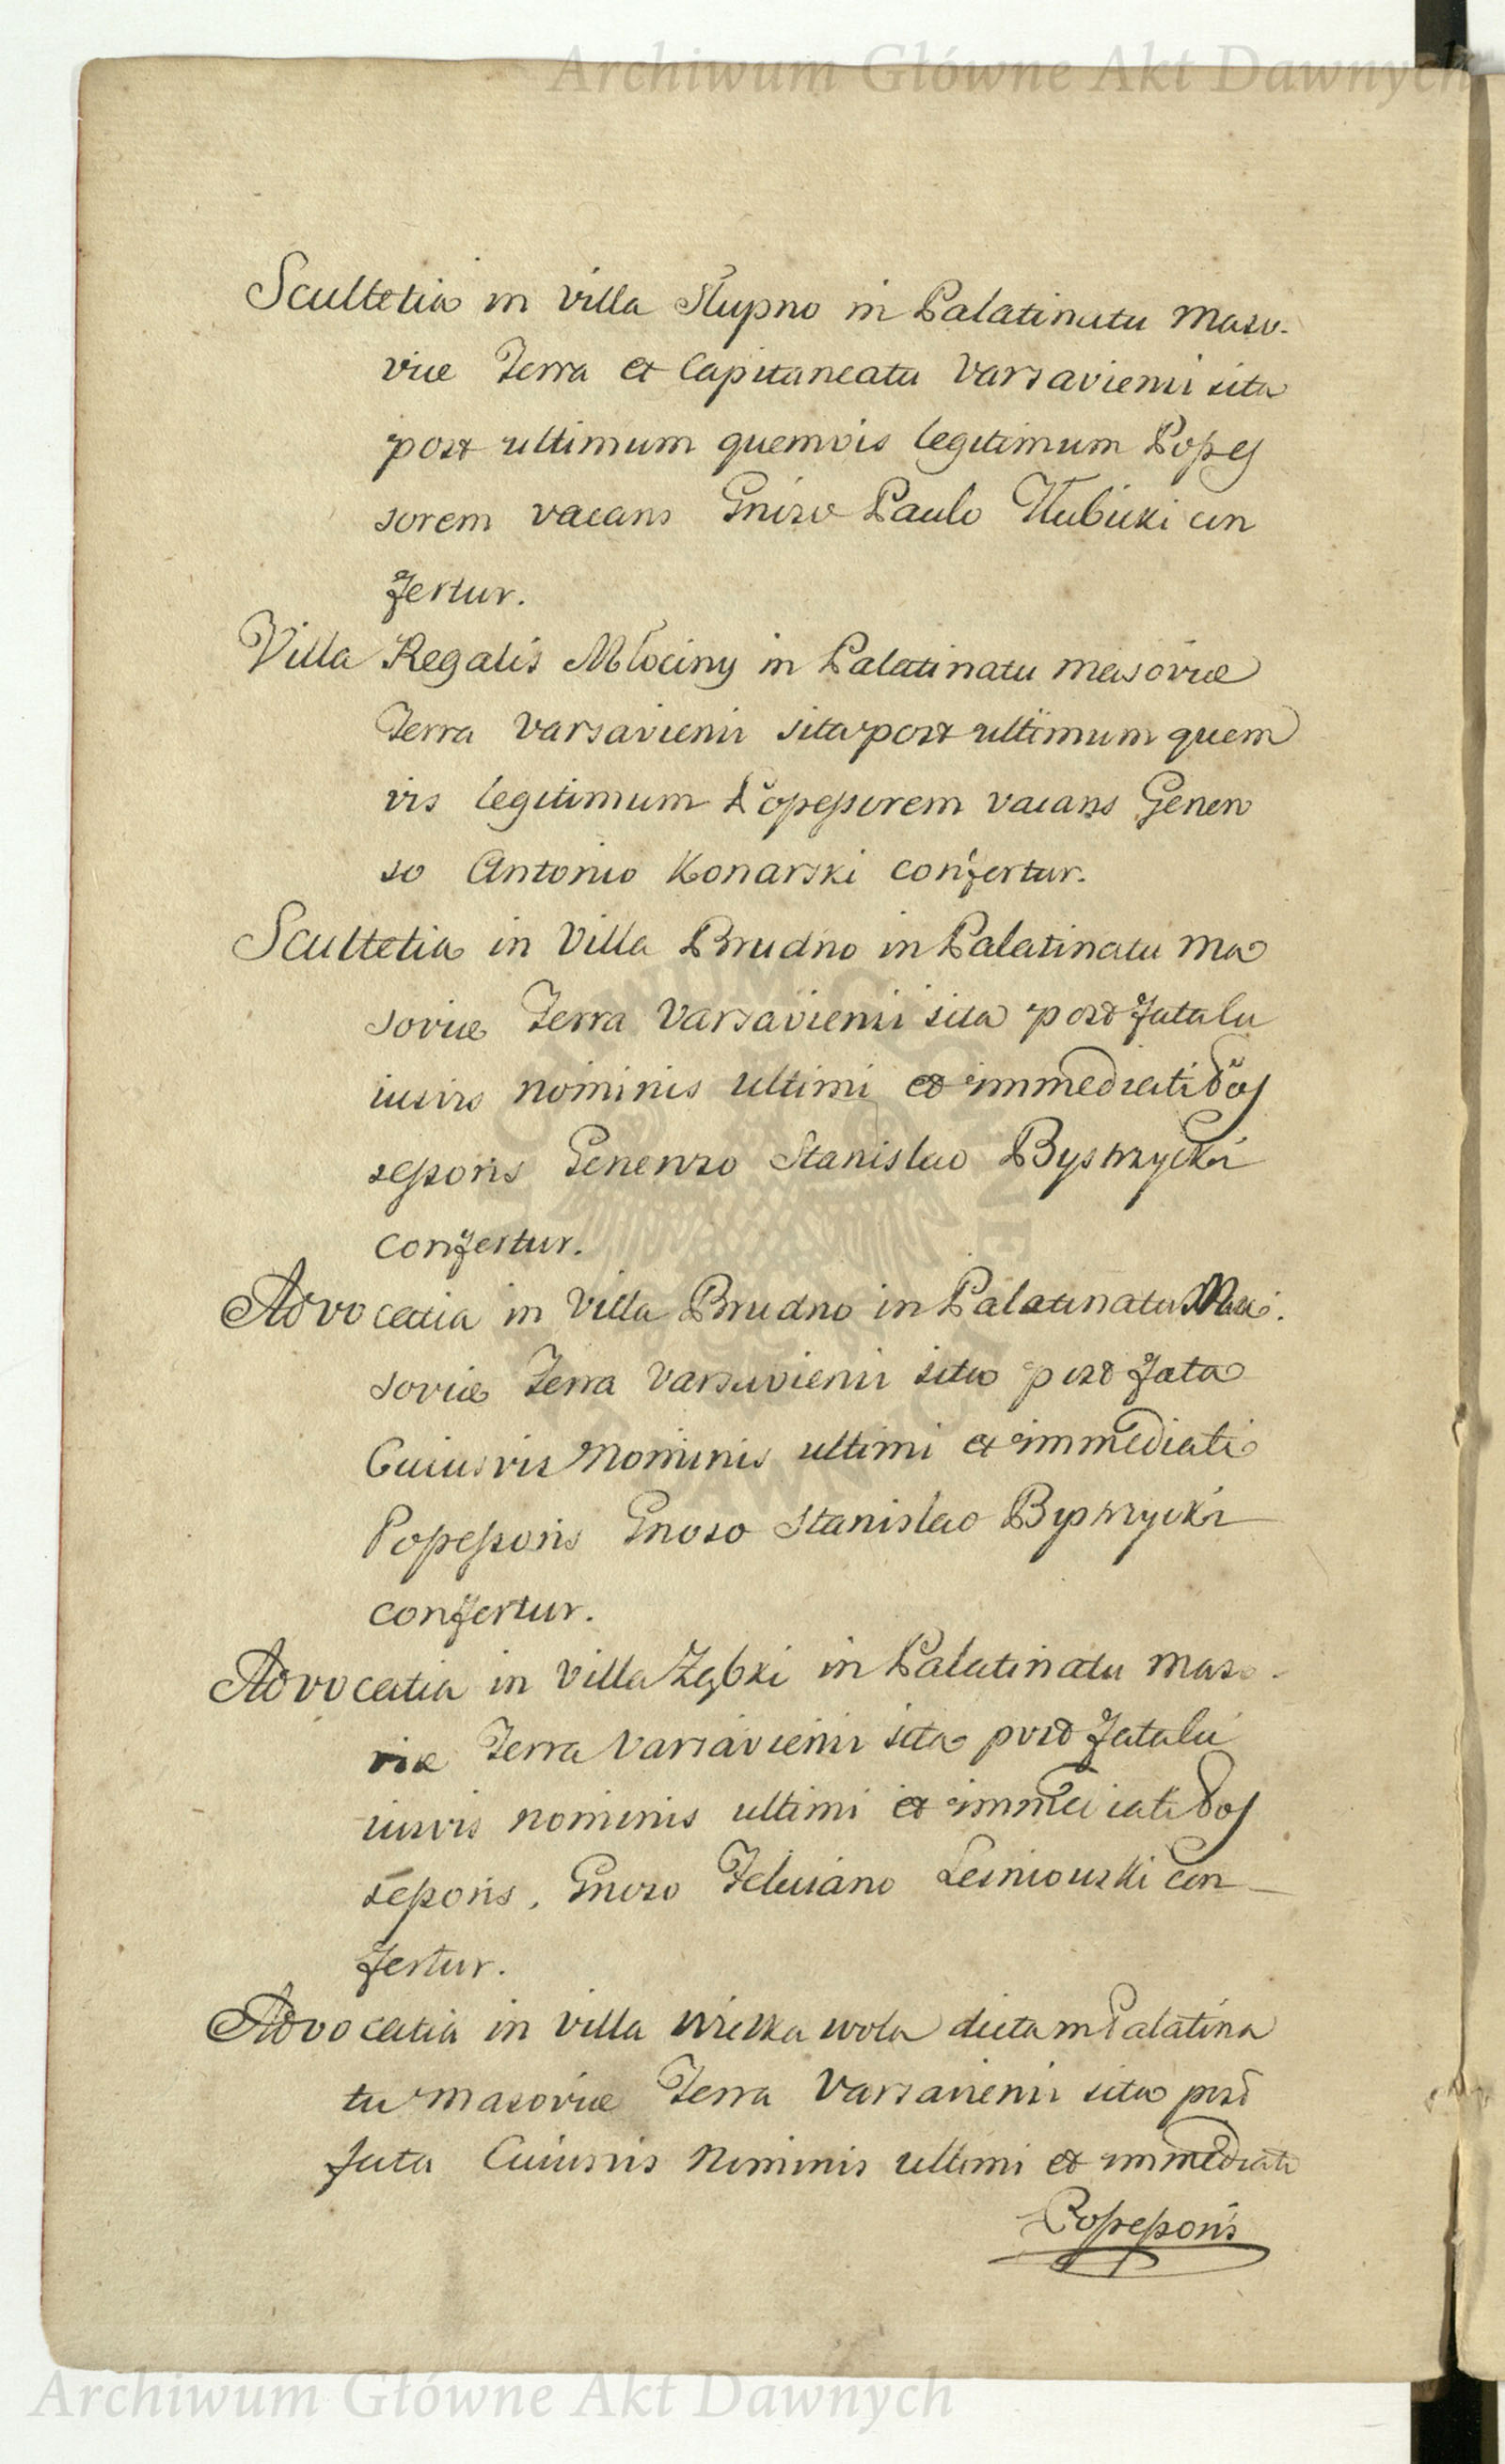 Archiwum Główne Akt Dawnych
Scultetia in villa Słupno in Palatinatu Maso-
viae Terra et Capitaneatu Varsaviensi sita
post ultimum quemvis legitimum Posses
sorem vacans Gnŕso Paulo Hłubicki con
fertur.
Villa Regalis Młociny in Palatinatu Masoviae
Terra Varsaviensi sita post ultimum quem
vis legitimum Possessorem vacans Genero
so Antonio Konarski confertur.
Scultetia in Villa Brudno in Palatinatu Ma
soviae Terra Varsaviensi sita post fata cu
iusvis nominis ultimi et immediati Pos
sessoris Generoso Stanislao Bystrzycki
confertur.
Advocatia in Villa Brudno in Palatinatu Ma
soviae Terra Varsaviensi sita post fata
Cuiusvis Nominis ultimi et immediati
Possessoris Gnoso Stanislao Bystrzycki
confertur.
Advocatia in villa Ząbki in Palatinatu Maso-
viae Terra Varsaviensi sita post fata cu
iusvis nominis ultimi et immediati Pos
sessoris, Gnoso Feliciano Leiniowski con-
fertur.
Advocatia in villa Wielka Wola dicta in Palatina
tu Masoviae Terra Varsaviensi sita post
fata Cuiusvis Nominis ultimi et immediati
Possessoris
Archiwum Główne Akt Dawnych